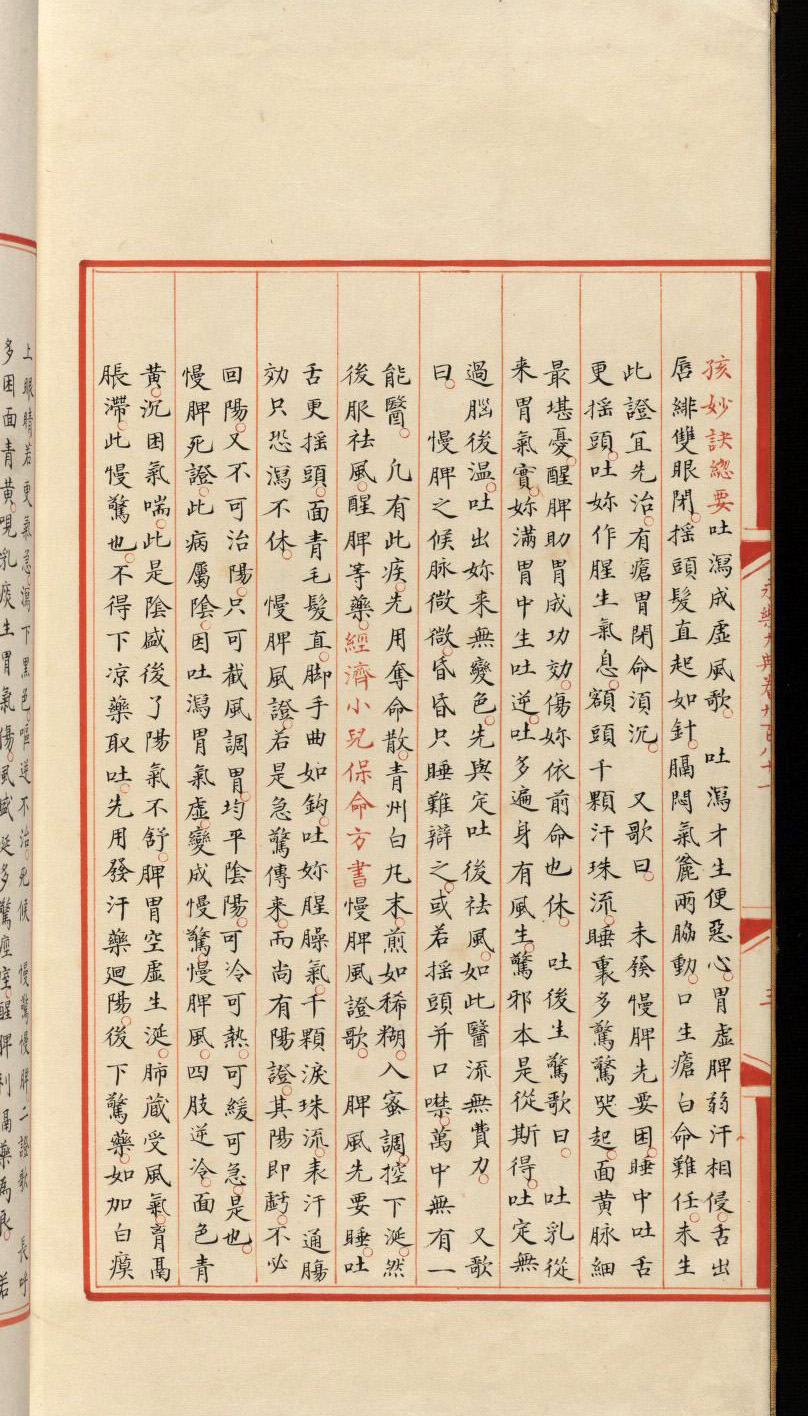 永樂大典卷九百八十一
三
孩妙訣總要吐瀉成虛風歌。 吐瀉才生便惡心。胃虛脾弱汗相侵。舌出
唇緋雙眼閉。搖頭髮直起如針。膈悶氣麄兩脇動。口生瘡白命難任。未生
此證宜先治。有瘡胃閉命湏沉。 又歌曰。 未發慢脾先要困。睡中吐舌
更搖頭。吐妳作腥生氣息。額頭千顆汗珠流。睡裏多驚驚哭起。面黃脉細
最堪憂。醒脾助胃成功効。傷妳依前命也休。 吐後生驚歌曰。 吐乳從
來胃氣實。妳滿胃中生吐逆。吐多遍身有風生。驚邪本是從斯得。吐定無
過腦後溫。吐出妳来無變色。先與定吐後祛風。如此醫流無費力。 又歌
曰。 慢脾之候脉微微。昏昏只睡難辯之。或若搖頭并口噤。萬中無有一
能醫。 凢有此疾。先用奪命散。青州白𠃵末。煎如稀糊。入蜜調。控下涎。然
後服祛風。醒脾等藥。經濟小兒保命方書慢脾風證歌。 脾風先要睡。吐
舌更搖頭。面青毛髮直。脚手曲如鈎。吐妳腥臊氣。千顆淚珠流。表汗通腸
効只恐瀉不休。 慢脾風證。若是急驚傳来。而尚有陽證。其陽即虧。不必
回陽。又不可治陽。只可截風調胃。均平陰陽。可冷可熱。可緩可急。是也。
慢脾死證。此病屬陰。因吐瀉胃氣虛。變成慢驚。慢脾風。四肢逆冷。面色青
黃。沉困氣喘。此是陰盛後了陽氣不舒。脾胃空虛生涎。肺藏受風氣。育鬲
脹滯。此慢驚也。不得下凉藥取吐。先用發汗藥廻陽。後下驚藥。如加白瘼
上眼睛若更氣急瀉下黑色嘔逆不治。死候 慢驚慢脾二證歌 長呼
多困面青黃。哯乳痰生胃氣傷。風盛涎多驚㾮室。醒脾利鬲藥爲良。 若